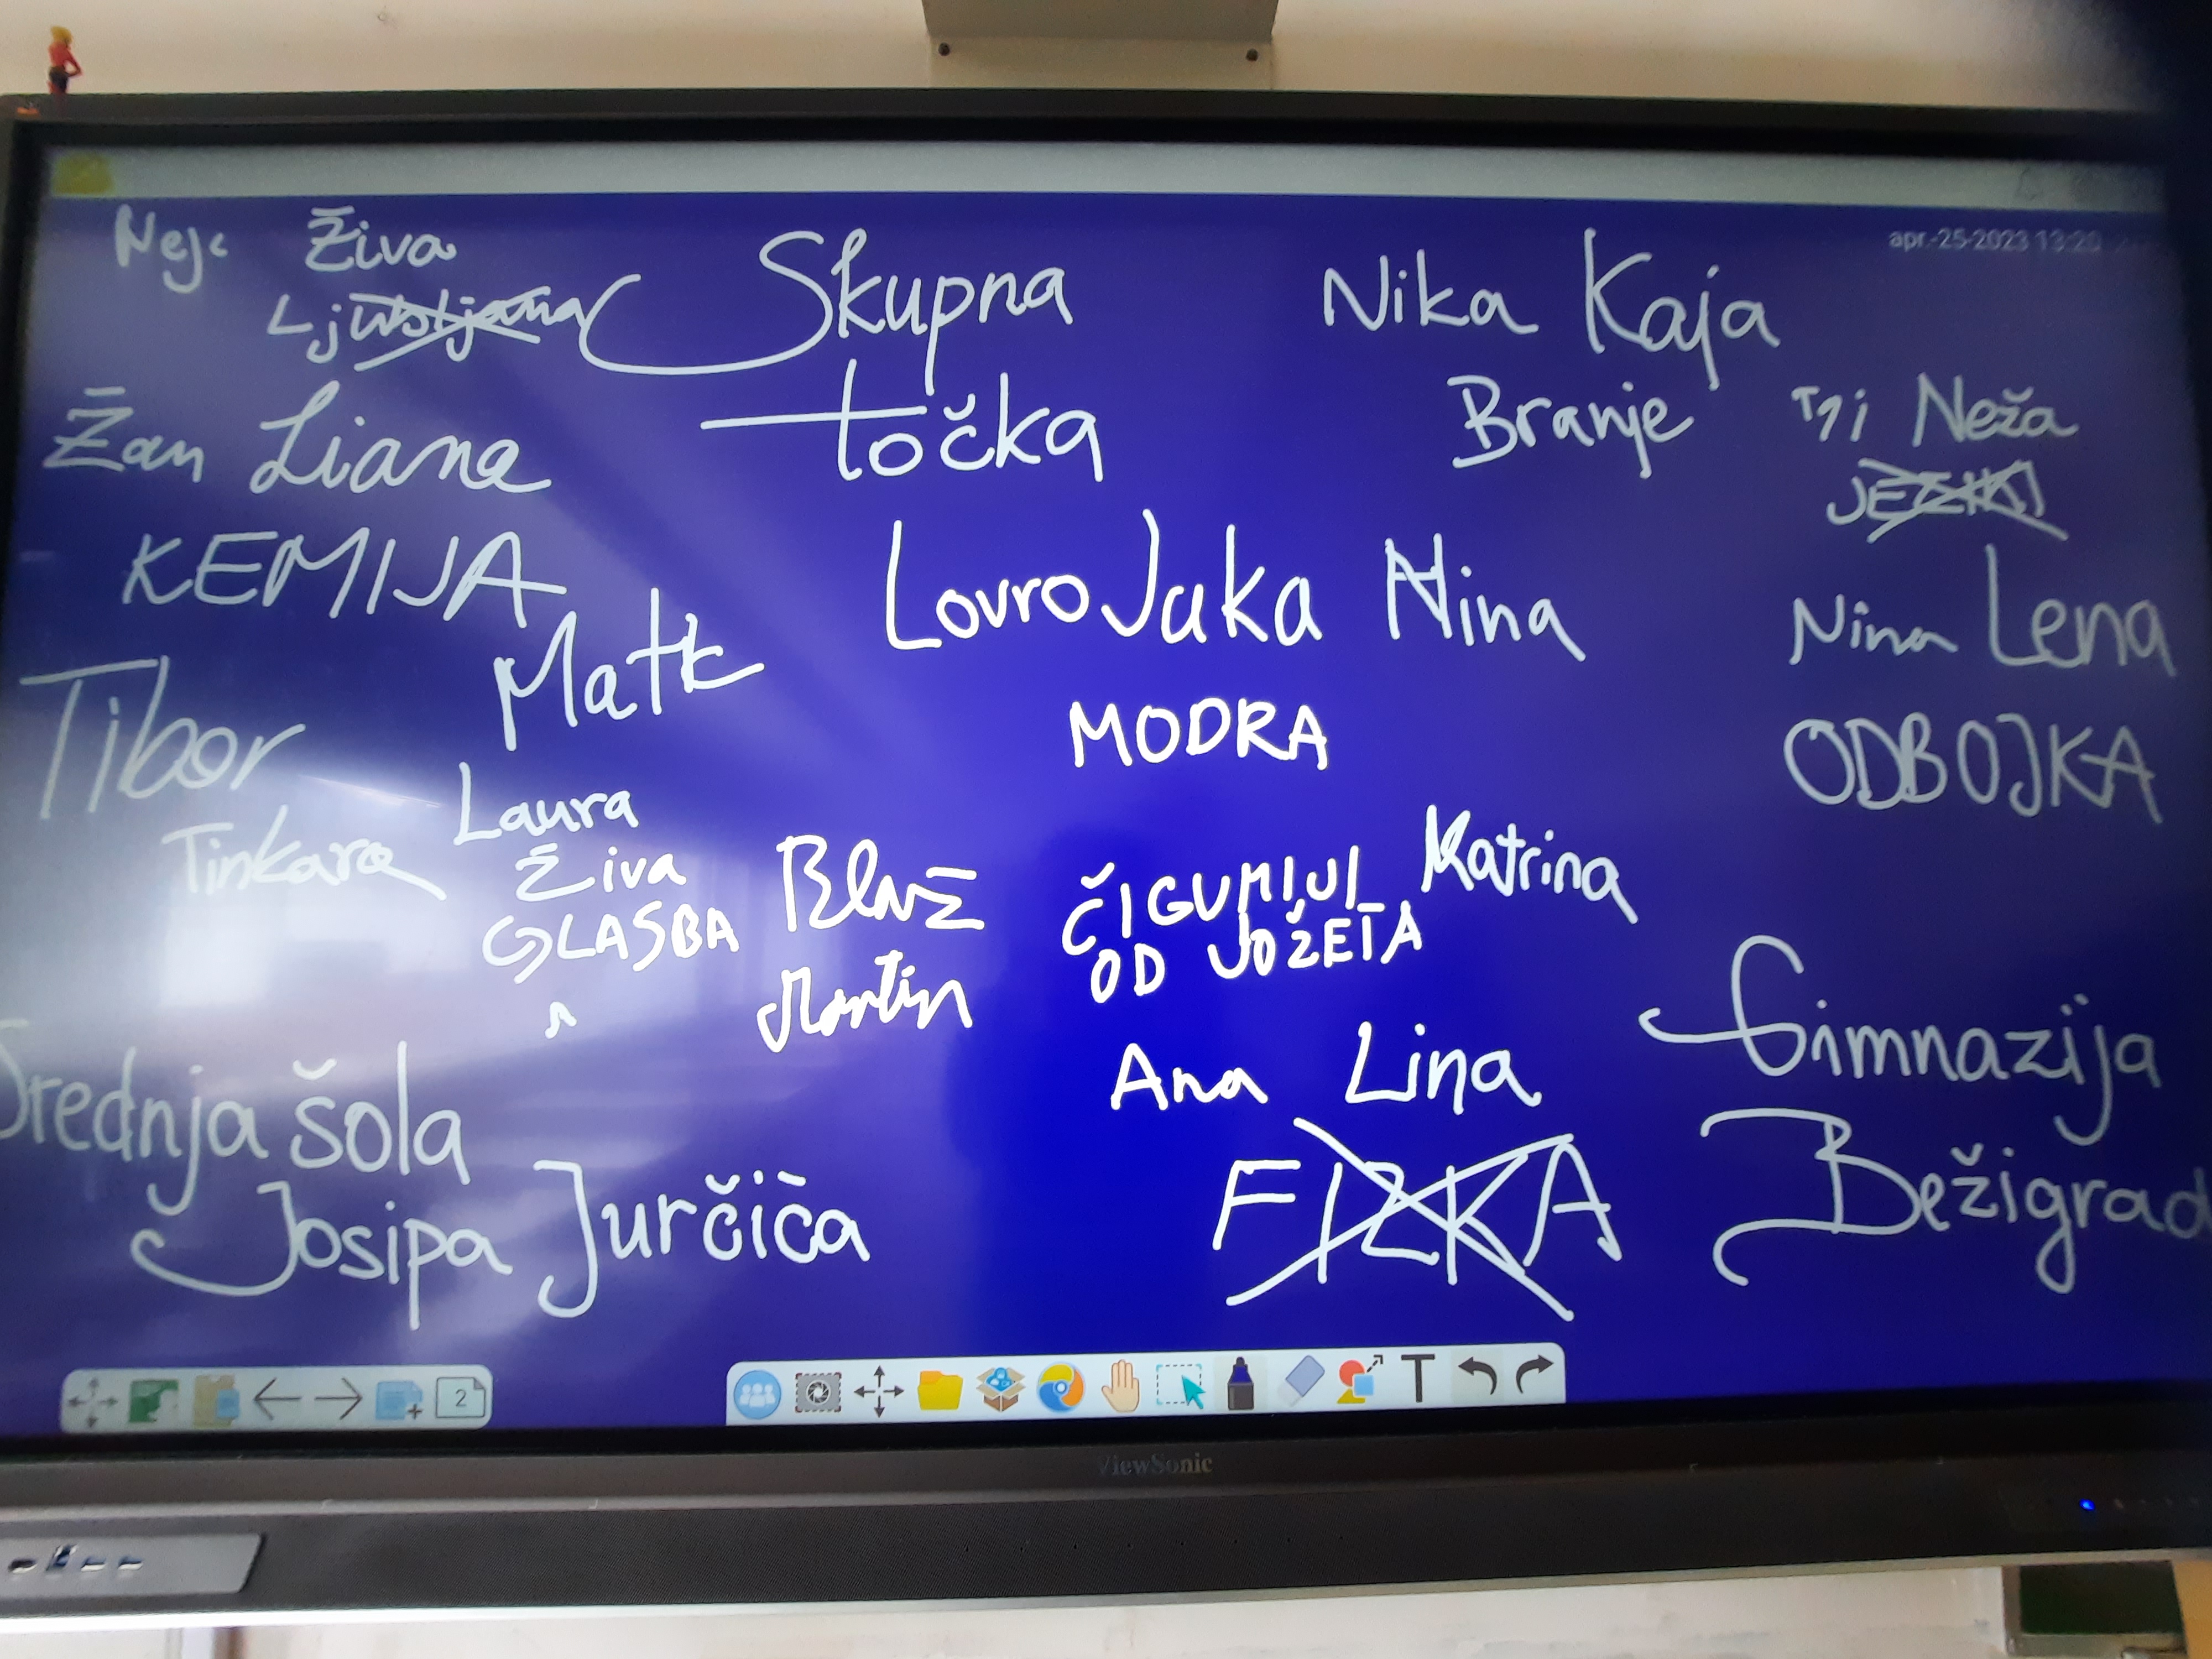 apr.-25-2023 13:20
Nejc Živa
Ljubljana
Skupna
točka
Nika Kaja
Branje
Neža
JEZIKI
Žan Liana
KEMIJA
Lovro Jaka Nina
MODRA
Nina Lena
ODBOJKA
Tibor
Matk
Tinkara
Laura
Živa
GLASBA
Blaž
Martin
ČIGUMIJI
OD JOŽETA
Katrina
Ana Lina
FIZKA
Srednja šola
Josipa Jurčiča
Gimnazija
Bežigrad
2
T
ViewSonic